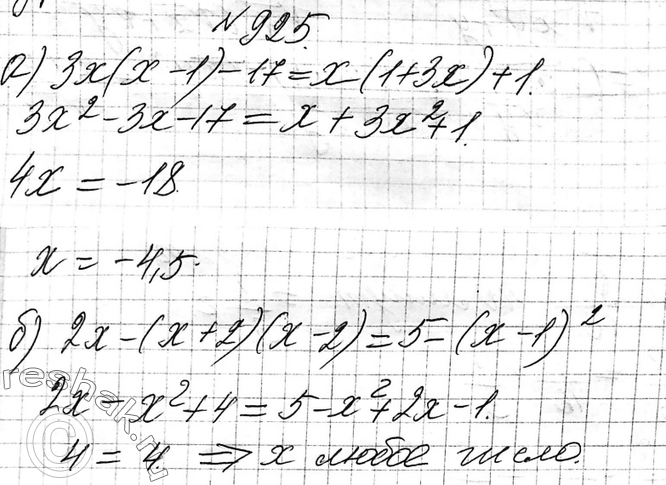 №925.
а) 3x(x-1)-17=x(1+3x)+1.
3x²-3x-17=x+3x²+1.
4x=-18.
x=-4,5.
б) 2x-(x+2)(x-2)=5-(x-1)²
2x-x²+4=5-x²+2x-1.
4=4. ⇒ x любое число.
reshak.ru